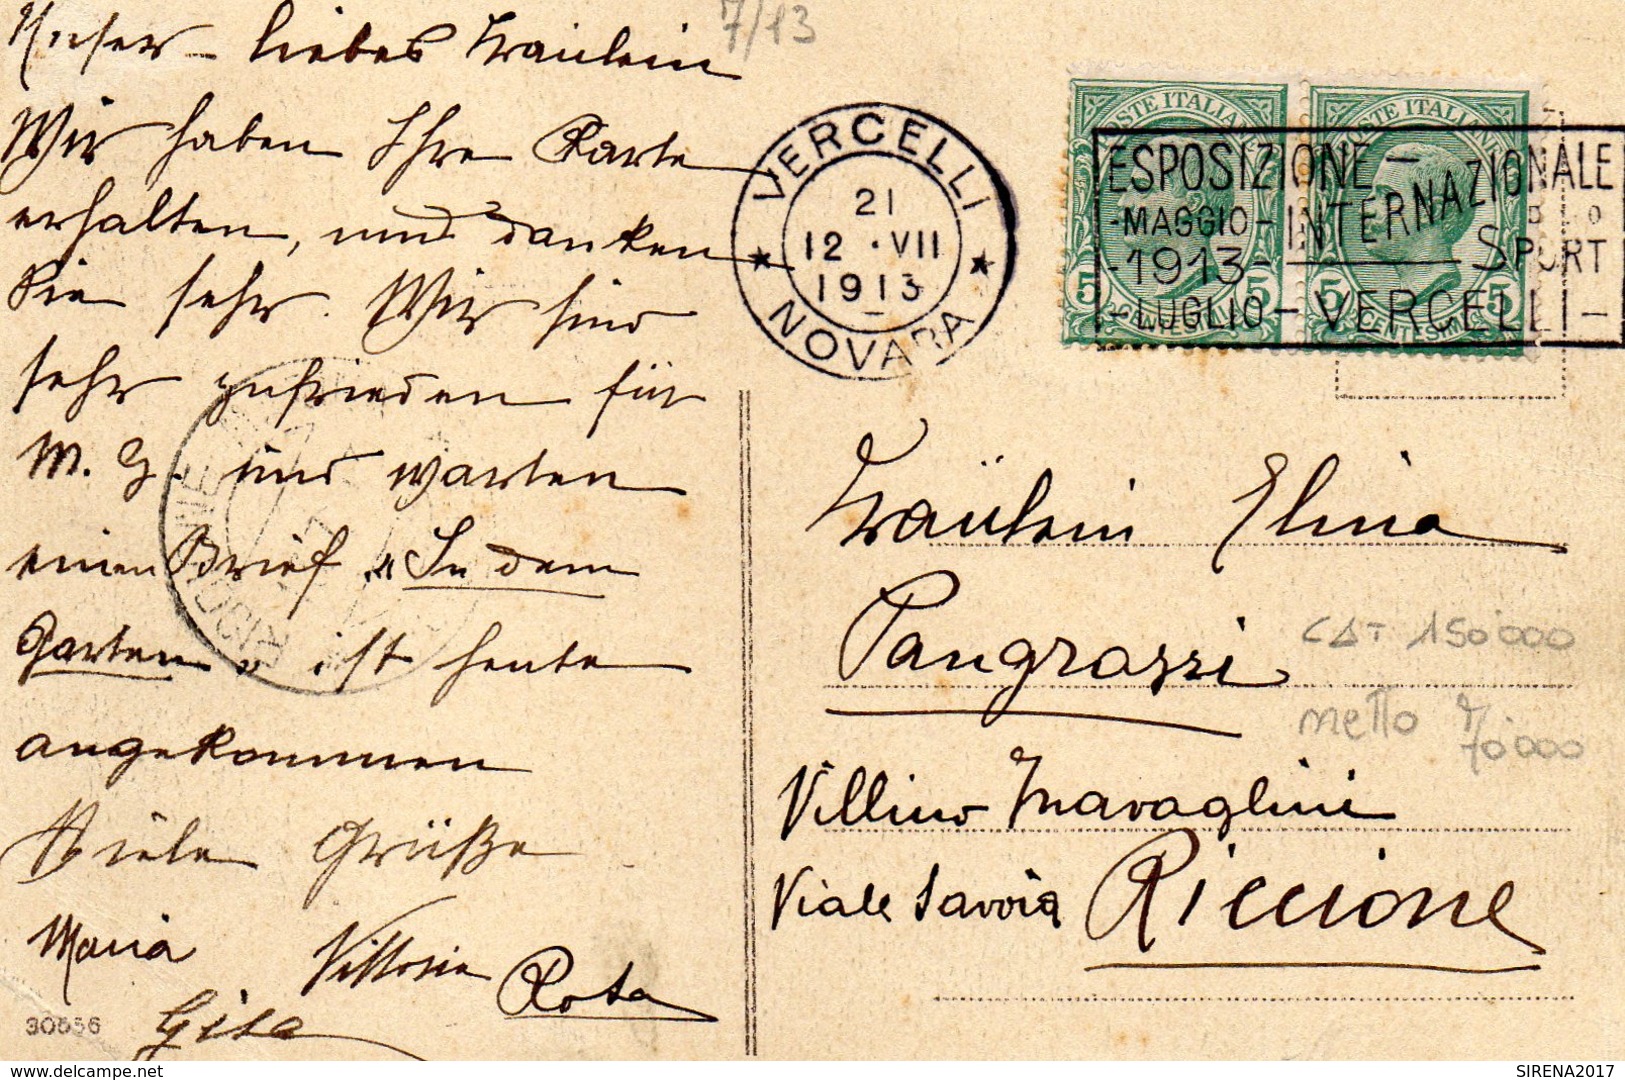 7/13
Unser liebes Fräulein
Wir haben Ihre Karte
erhalten, und danken
Sie sehr. Wir sind
sehr zufrieden für
M. G. und warten
einen Brief. „In dem
Garten" ist heute
angekommen
Viele Grüße
Maria Vittoria Rosa
Gisa
30656
VERCELLI
21
12 · VII
1913
NOVARA
POSTE ITALIANE
POSTE ITALIANE
5 5
5 5
ESPOSIZIONE - INTERNAZIONALE
- MAGGIO -
- 1913 - SPORT
- LUGLIO - VERCELLI -
RICCIONE
Fräulein Elina
Pangrazzi
Villino Mavaglini
Viale Savoia Riccione
CAT 150'000
netto 70'000
delcampe.net
SIRENA2017